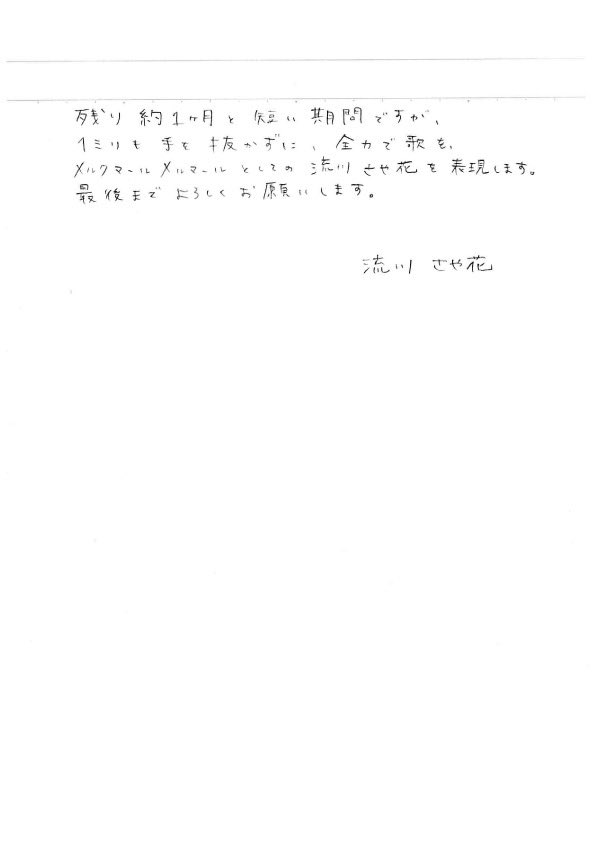 残り約1ヶ月と短い期間ですが、
1ミリも手を抜かずに、全力で歌を、
メルクマールメルマールとしての流川さや花を表現します。
最後までよろしくお願いします。
流川 さや花